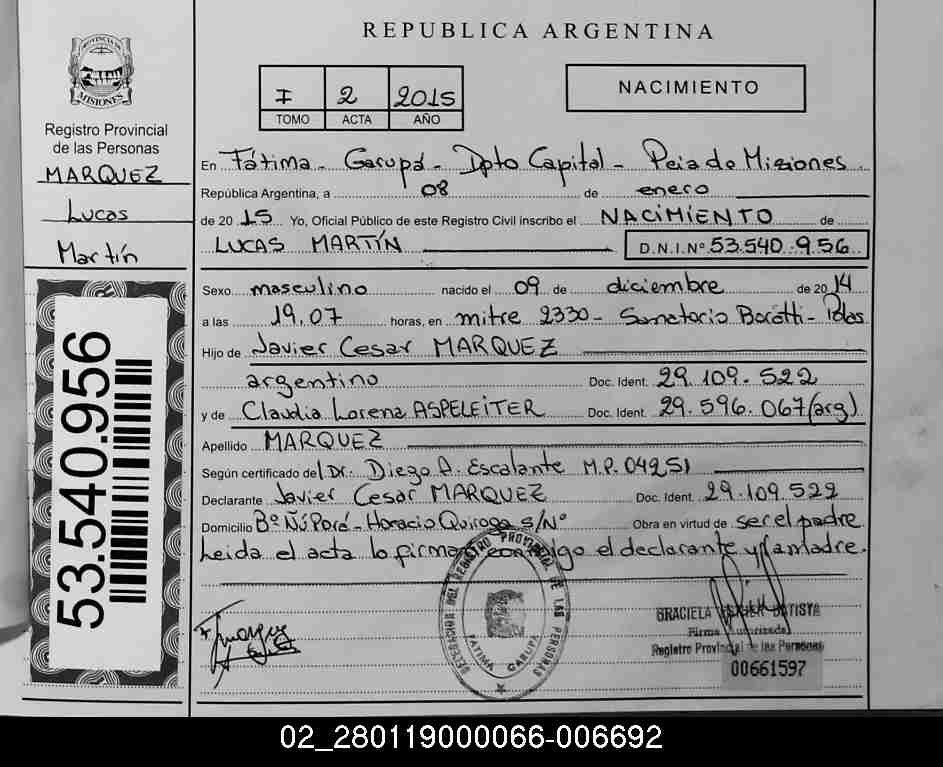 REPUBLICA ARGENTINA
PROVINCIA DE
MISIONES
Registro Provincial
de las Personas
MARQUEZ
Lucas
Martín
53.540.956
I 2 2015
TOMO ACTA AÑO
NACIMIENTO
En Fátima - Garupá - Dpto Capital - Pcia de Misiones
República Argentina, a 08 de enero
de 2015 Yo, Oficial Público de este Registro Civil inscribo el NACIMIENTO de
LUCAS MARTÍN D.N.I.Nº 53.540.956
Sexo masculino nacido el 09 de diciembre de 2014
a las 19.07 horas, en mitre 2330 - Sanatorio Boratti - Pdas
Hijo de Javier Cesar MARQUEZ
argentino Doc. Ident. 29.109.522
y de Claudia Lorena ASPELEITER Doc. Ident. 29.596.067 (arg)
Apellido MARQUEZ
Según certificado del Dr. Diego A. Escalante M.P. 04251
Declarante Javier Cesar MARQUEZ Doc. Ident. 29.109.522
Domicilio Bº Ñú Porá - Horacio Quiroga s/Nº Obra en virtud de ser el padre
Leida el acta la firman conmigo el declarante y la madre.
DELEGACION DEL REGISTRO PROVINCIAL DE LAS PERSONAS
FATIMA GARUPA
GRACIELA BATISTA
Firma Autorizada
Registro Provincial de las Personas
00661597
02_280119000066-006692